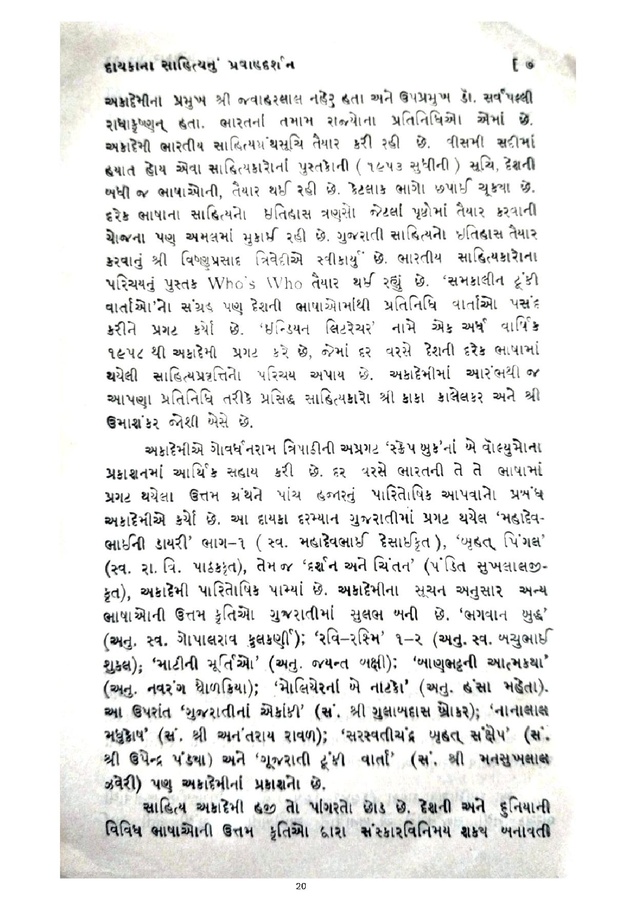 દાયકાના સાહિત્યનું પ્રવાહદર્શન [ ૭
અકાદેમીના પ્રમુખ શ્રી જવાહરલાલ નહેરુ હતા અને ઉપપ્રમુખ ડૉ. સર્વપલ્લી
રાધાકૃષ્ણન્ હતા. ભારતનાં તમામ રાજ્યોના પ્રતિનિધિઓ એમાં છે.
અકાદેમી ભારતીય સાહિત્યગ્રંથસૂચિ તૈયાર કરી રહી છે. વીસમી સદીમાં
હયાત હોય એવા સાહિત્યકારોનાં પુસ્તકોની ( ૧૯૫૩ સુધીની ) સૂચિ, દેશની
બધી જ ભાષાઓની, તૈયાર થઈ રહી છે. કેટલાક ભાગો છપાઈ ચૂક્યા છે.
દરેક ભાષાના સાહિત્યનો ઇતિહાસ ત્રણસો જેટલાં પૃષ્ઠોમાં તૈયાર કરવાની
યોજના પણ અમલમાં મુકાઈ રહી છે. ગુજરાતી સાહિત્યનો ઇતિહાસ તૈયાર
કરવાનું શ્રી વિષ્ણુપ્રસાદ ત્રિવેદીએ સ્વીકાર્યું છે. ભારતીય સાહિત્યકારોના
પરિચયનું પુસ્તક Who's Who તૈયાર થઈ રહ્યું છે. ‘સમકાલીન ટૂંકી
વાર્તાઓ’નો સંગ્રહ પણ દેશની ભાષાઓમાંથી પ્રતિનિધિ વાર્તાઓ પસંદ
કરીને પ્રગટ કર્યો છે. ‘ઇન્ડિયન લિટરેચર’ નામે એક અર્ધ વાર્ષિક
૧૯૫૮ થી અકાદેમી પ્રગટ કરે છે, જેમાં દર વરસે દેશની દરેક ભાષામાં
થયેલી સાહિત્યપ્રવૃત્તિનો પરિચય અપાય છે. અકાદેમીમાં આરંભથી જ
આપણા પ્રતિનિધિ તરીકે પ્રસિદ્ધ સાહિત્યકારો શ્રી કાકા કાલેલકર અને શ્રી
ઉમાશંકર જોશી બેસે છે.
અકાદેમીએ ગોવર્ધનરામ ત્રિપાઠીની અપ્રગટ ‘સ્ક્રેપ બુક’નાં બે વૉલ્યુમોના
પ્રકાશનમાં આર્થિક સહાય કરી છે. દર વરસે ભારતની તે તે ભાષામાં
પ્રગટ થયેલા ઉત્તમ ગ્રંથને પાંચ હજારનું પારિતોષિક આપવાનો પ્રબંધ
અકાદેમીએ કર્યો છે. આ દાયકા દરમ્યાન ગુજરાતીમાં પ્રગટ થયેલ ‘મહાદેવ-
ભાઈની ડાયરી’ ભાગ-૧ ( સ્વ. મહાદેવભાઈ દેસાઈકૃત ), ‘બૃહત્ પિંગલ’
(સ્વ. રા. વિ. પાઠકકૃત), તેમ જ ‘દર્શન અને ચિંતન’ (પંડિત સુખલાલજી-
કૃત), અકાદેમી પારિતોષિક પામ્યાં છે. અકાદેમીના સૂચન અનુસાર અન્ય
ભાષાઓની ઉત્તમ કૃતિઓ ગુજરાતીમાં સુલભ બની છે. ‘ભગવાન બુદ્ધ’
(અનુ. સ્વ. ગોપાલરાવ કુલકર્ણી); ‘રવિ-રશ્મિ’ ૧-૨ (અનુ. સ્વ. બચુભાઈ
શુકલ); ‘માટીની મૂર્તિઓ’ (અનુ. જયન્ત બક્ષી); ‘બાણભટ્ટની આત્મકથા’
(અનુ. નવરંગ ધોળકિયા); ‘મોલિયેરનાં બે નાટકો’ (અનુ. હંસા મહેતા).
આ ઉપરાંત ‘ગુજરાતીનાં એકાંકી’ (સં. શ્રી ગુલાબદાસ બ્રોકર); ‘નાનાલાલ
મધુકોષ’ (સં. શ્રી અનંતરાય રાવળ); ‘સરસ્વતીચંદ્ર બૃહત્ સંક્ષેપ’ (સં.
શ્રી ઉપેન્દ્ર પંડ્યા) અને ‘ગૂજરાતી ટૂંકી વાર્તા’ (સં. શ્રી મનસુખલાલ
ઝવેરી) પણ અકાદેમીનાં પ્રકાશનો છે.
સાહિત્ય અકાદેમી હજી તો પાંગરતો છોડ છે. દેશની અને દુનિયાની
વિવિધ ભાષાઓની ઉત્તમ કૃતિઓ દ્વારા સંસ્કારવિનિમય શક્ય બનાવતી
20